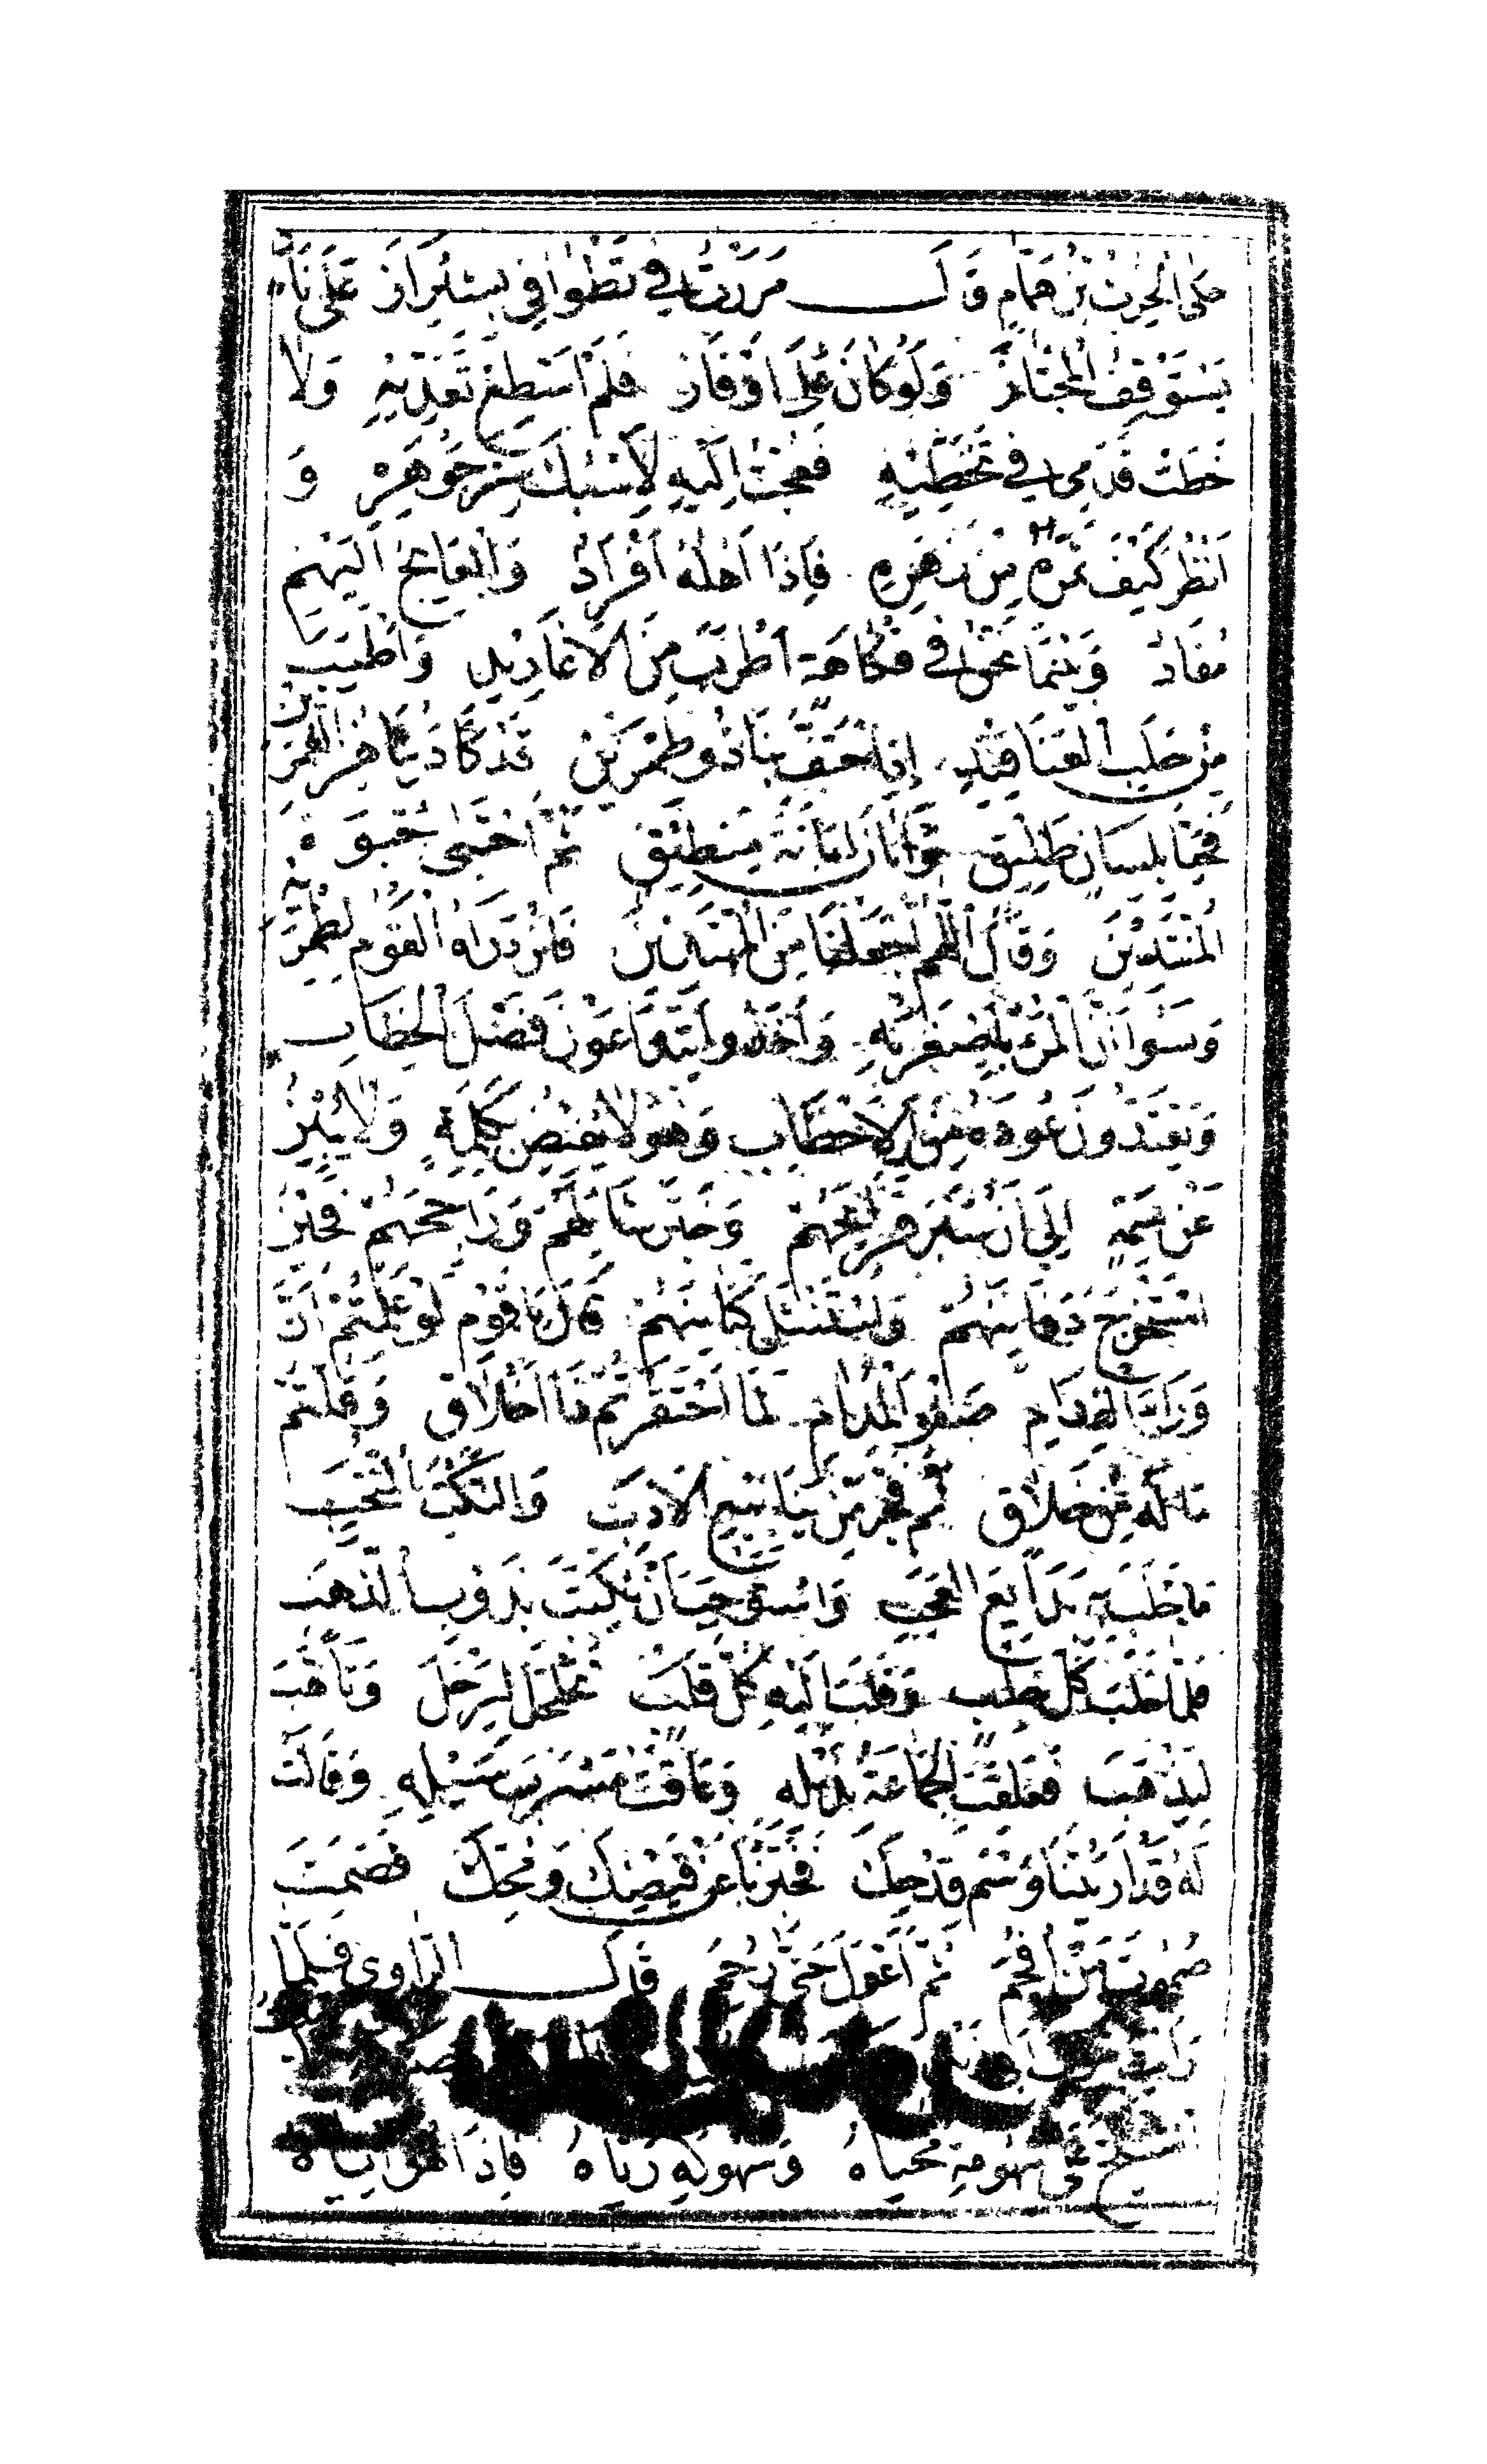 حَكَى الْحٰرِثُ بْنُ هَمَّامٍ قَالَ مَرَرْتُ فِي تَطْوَافِي بِشِيرَازَ عَلَى نَادٍ
يَسْتَوْقِفُ الْمُجْتَازَ وَلَوْ كَانَ عَلَى اَوْفَازٍ فَلَمْ اَسْتَطِعْ تَعَدِّيَهُ وَلَا
خَطَتْ قَدَمِي فِي تَخَطِّيهِ فَعُجْتُ اِلَيْهِ لِأَسْبُكَ سِرَّ جَوْهَرِهِ وَ
اَنْظُرَ كَيْفَ ثَمَرُهُ مِنْ زَهَرِهِ فَاِذَا اَهْلُهُ اَفْرَادٌ وَالْعَايِجُ اِلَيْهِمْ
مُفَادٌ وَبَيْنَمَا نَحْنُ فِي فُكَاهَةٍ اَطْرَبَ مِنَ الْاَغَارِيدِ وَاَطْيَبَ
مِنْ حَلَبِ الْعَنَاقِيدِ اِذِ احْتَفَّ بِنَا ذُو طِمْرَيْنِ قَدْ كَادَ يُنَاهِزُ الْعُمْرَيْنِ
فَحَيَّا بِلِسَانٍ طَلِيقٍ وَاَبَانَ اِبَانَةَ مِنْطِيقٍ ثُمَّ احْتَبَى حُبْوَةَ
الْمُنْتَدِينَ وَقَالَ اللّٰهُمَّ اجْعَلْنَا مِنَ الْمُهْتَدِينَ فَازْدَرَاهُ الْقَوْمُ لِطِمْرَيْهِ
وَنَسُوا اَنَّ الْمَرْءَ بِأَصْغَرَيْهِ وَاَخَذُوا يَتَدَاعَوْنَ فَصْلَ الْخِطَابِ
وَيَعْتَدُّونَ عُودَهُ مِنَ الْاَحْطَابِ وَهُوَ لَا يُفِيضُ بِكَلِمَةٍ وَلَا يُبِينُ
عَنْ سِمَةٍ اِلَى اَنْ سَبَرَ قَرَايِحَهُمْ وَخَبَرَ شَايِلَهُمْ وَرَاجِحَهُمْ فَحِينَ
اسْتَخْرَجَ دَفَايِنَهُمْ وَاسْتَنْثَلَ كَنَايِنَهُمْ قَالَ يَا قَوْمِ لَوْ عَلِمْتُمْ اَنَّ
وَرَاءَ الْفِدَامِ صَفْوَ الْمُدَامِ لَمَا احْتَقَرْتُمْ ذَا اَخْلَاقٍ وَقُلْتُمْ
مَا لَهُ مِنْ خَلَاقٍ ثُمَّ فَجَّرَ مِنْ يَنَابِيعِ الْاَدَبِ وَالنُّكَتِ النُّخَبِ
مَا جَلَبَ بِهِ بَدَايِعَ الْعَجَبِ وَاسْتَوْجَبَ اَنْ يُكْتَبَ بِذَوْبِ الذَّهَبِ
فَلَمَّا خَلَبَ كُلَّ خِلْبٍ وَقَلَبَ اِلَيْهِ كُلَّ قَلْبٍ تَحَلْحَلَ لِيَرْحَلَ وَتَأَهَّبَ
لِيَذْهَبَ فَعَلِقَتِ الْجَمَاعَةُ بِذَيْلِهِ وَعَاقَتْ مَسْرَبَ سَيْلِهِ وَقَالَتْ
لَهُ قَدْ اَرَيْتَنَا وَسْمَ قِدْحِكَ فَخَبِّرْنَا عَنْ قَيْضِكَ وَمُحِّكَ فَصَمَتَ
صُمُوتَ مَنْ اُفْحِمَ ثُمَّ اَعْوَلَ حَتَّى رُحِمَ قَالَ الرَّاوِي فَلَمَّا
رَاَيْتُ
سَهُومَةِ مُحَيَّاهُ وَسُهُوكَةِ رَيَّاهُ فَاِذَا هُوَ اِيَّاهُ